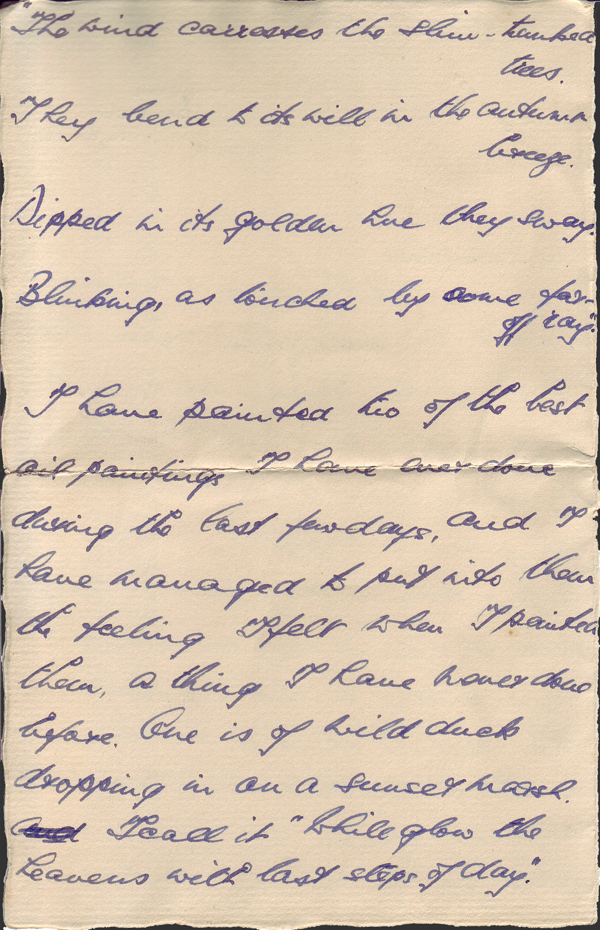 "The wind carresses the slim-trunked
trees.
They bend to its will in the autumn
breeze.
Dipped in its golden hue they sway.
Blinking, as touched by some far-
off ray".
I have painted two of the best
oil paintings I have ever done
during the last few days, and I
have managed to put into them
the feeling I felt when I painted
them, a thing I have never done
before. One is of wild duck
dropping in on a sunset marsh.
and I call it "While glow the
heavens with last steps of day".